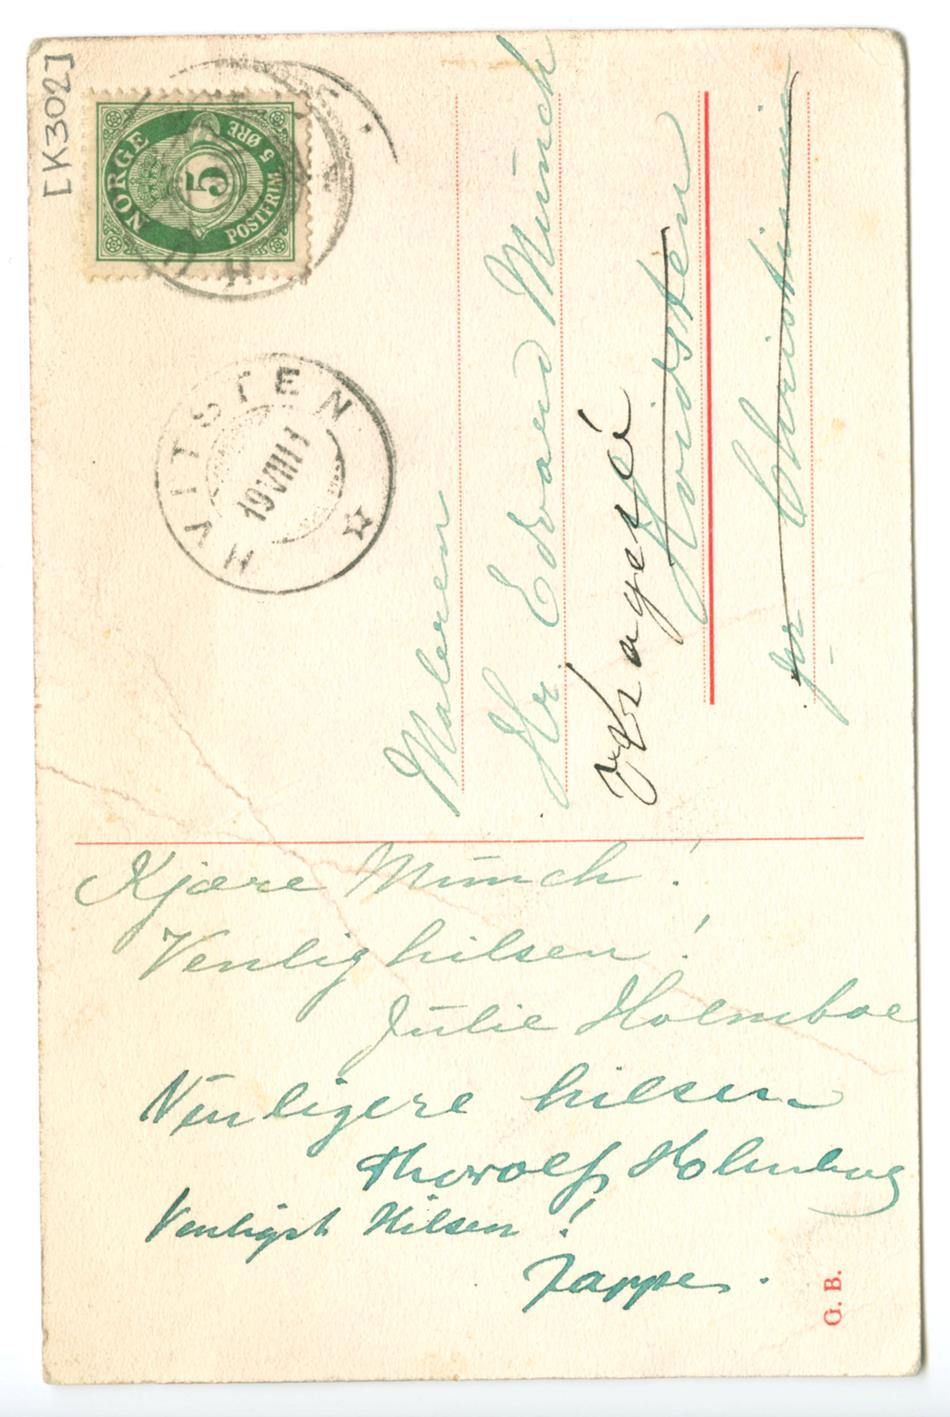 [K302]
NORGE
5
POSTFRIM. 5 ØRE
HVITSTEN
19 VIII 11
Maleren
Hr Edvard Münch
Kragerø
Hvidsten
pr Christiania
Kjære Münch!
Venlig hilsen!
Julie Holmboe
Venligere hilsen
Thorolf Holmboe
Venligst Hilsen!
Jappe.
G. B.